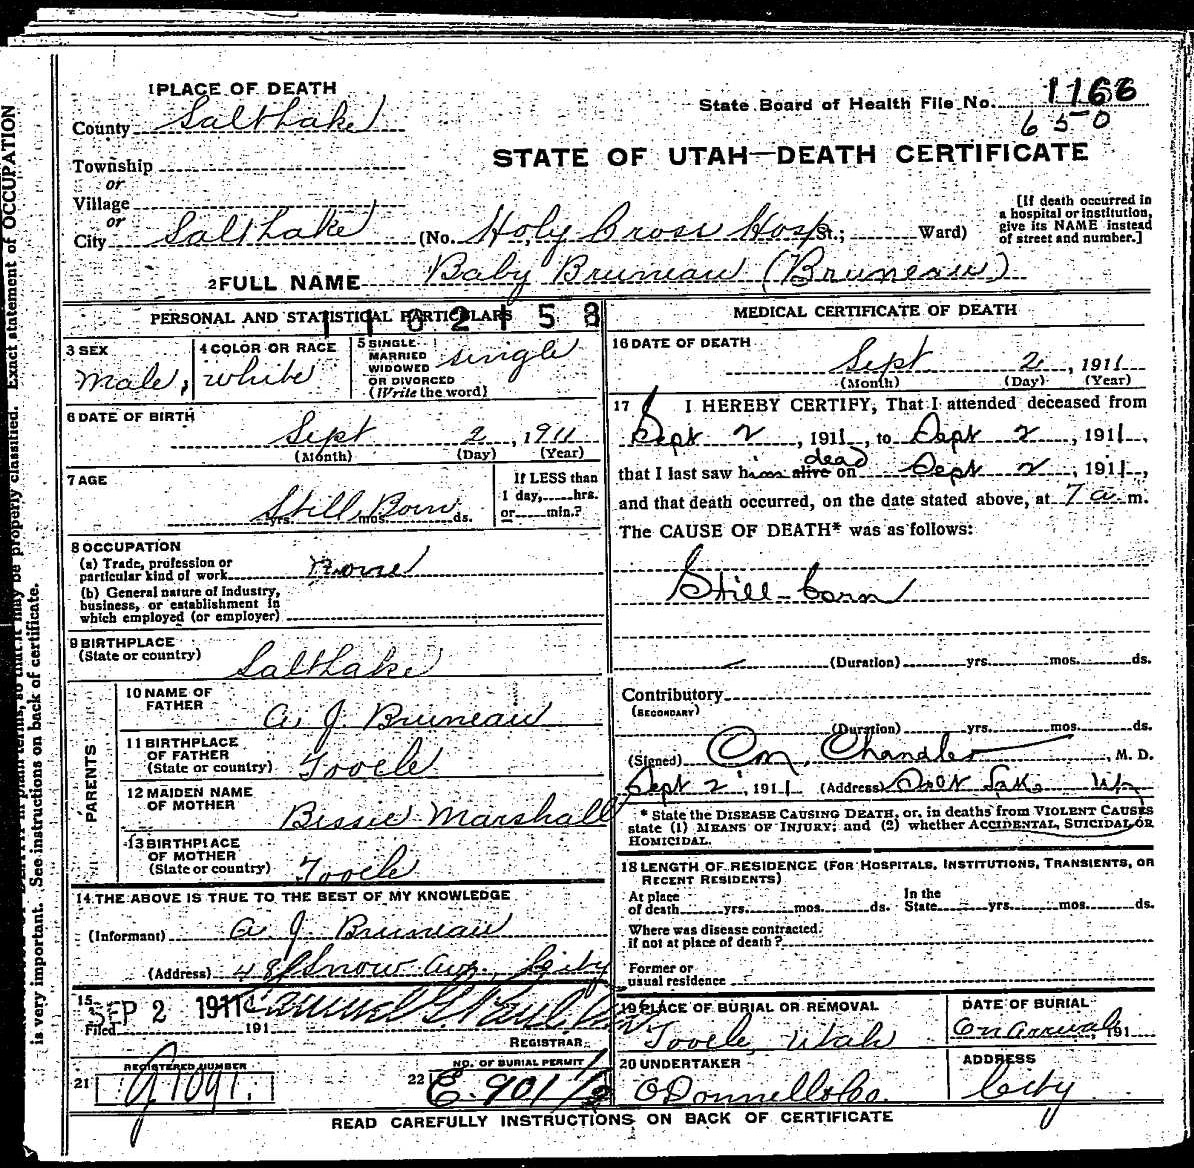 1 PLACE OF DEATH
County Salt Lake
State Board of Health File No. 1166
650
STATE OF UTAH—DEATH CERTIFICATE
Township
or
Village
or
City Salt Lake (No. Holy Cross Hosp St.; Ward)
[If death occurred in
a hospital or institution,
give its NAME instead
of street and number.]
2 FULL NAME Baby Bruneau (Bruneau)
PERSONAL AND STATISTICAL PARTICULARS
3 SEX
Male,
4 COLOR OR RACE
white
5 SINGLE
MARRIED
WIDOWED
OR DIVORCED
(Write the word)
single
6 DATE OF BIRTH
Sept 2, 1911
(Month) (Day) (Year)
7 AGE
Still Born
yrs. mos. ds.
If LESS than
1 day, hrs.
or min.?
8 OCCUPATION
(a) Trade, profession or
particular kind of work none
(b) General nature of industry,
business, or establishment in
which employed (or employer)
9 BIRTHPLACE
(State or country)
Salt Lake
PARENTS
10 NAME OF
FATHER
A. J. Bruneau
11 BIRTHPLACE
OF FATHER
(State or country)
Tooele
12 MAIDEN NAME
OF MOTHER
Bissie Marshall
13 BIRTHPLACE
OF MOTHER
(State or country)
Tooele
14 THE ABOVE IS TRUE TO THE BEST OF MY KNOWLEDGE
(Informant) A. J. Bruneau
(Address) Snow Ave., City
15
Filed SEP 2 1911 191
REGISTRAR
REGISTERED NUMBER
21 J1091.
NO. OF BURIAL PERMIT
22 E. 901 1/2
MEDICAL CERTIFICATE OF DEATH
16 DATE OF DEATH
Sept 2, 1911
(Month) (Day) (Year)
17 I HEREBY CERTIFY, That I attended deceased from
Sept 2, 1911, to Sept 2, 1911,
that I last saw him alive dead on Sept 2, 1911,
and that death occurred, on the date stated above, at 7 a m.
The CAUSE OF DEATH* was as follows:
Still-born
(Duration) yrs. mos. ds.
Contributory
(SECONDARY)
(Duration) yrs. mos. ds.
(Signed) Chandler M. D.
Sept 2, 1911 (Address) Salt Lake
* State the DISEASE CAUSING DEATH, or, in deaths from VIOLENT CAUSES
state (1) MEANS OF INJURY; and (2) whether ACCIDENTAL, SUICIDAL, OR
HOMICIDAL.
18 LENGTH OF RESIDENCE (FOR HOSPITALS, INSTITUTIONS, TRANSIENTS, OR
RECENT RESIDENTS)
At place
of death yrs. mos. ds.
In the
State yrs. mos. ds.
Where was disease contracted,
if not at place of death?
Former or
usual residence
19 PLACE OF BURIAL OR REMOVAL
Tooele, Utah
DATE OF BURIAL
On Arrival, 191
20 UNDERTAKER
O'Donnell & Co.
ADDRESS
City
READ CAREFULLY INSTRUCTIONS ON BACK OF CERTIFICATE
is very important. See instructions on back of certificate.
may be properly classified. Exact statement of OCCUPATION